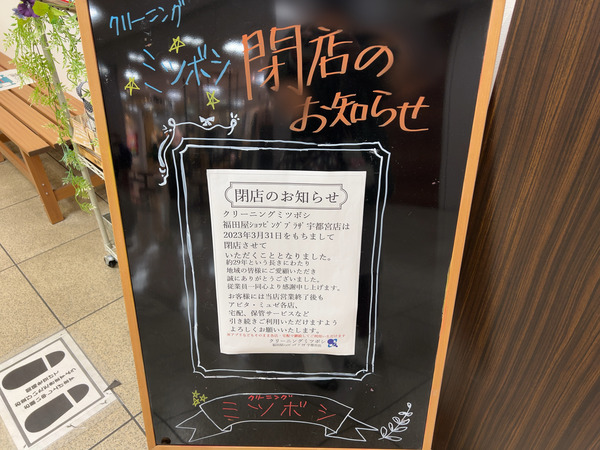 クリーニング
ミツボシ
閉店の
お知らせ
閉店のお知らせ
クリーニングミツボシ
福田屋ｼｮｯﾋﾟﾝｸﾞﾌﾟﾗｻﾞ宇都宮店は
2023年3月31日をもちまして
閉店させて
いただくこととなりました。
約29年という長きにわたり
地域の皆様にご愛顧いただき
誠にありがとうございました。
従業員一同心より感謝申し上げます。
お客様には当店営業終了後も
アピタ・ミュゼ各店、
宅配、保管サービスなど
引き続きご利用いただけますよう
よろしくお願いいたします。
クリーニングミツボシ
福田屋ｼｮｯﾋﾟﾝｸﾞﾌﾟﾗｻﾞ宇都宮店
クリーニング
ミツボシ